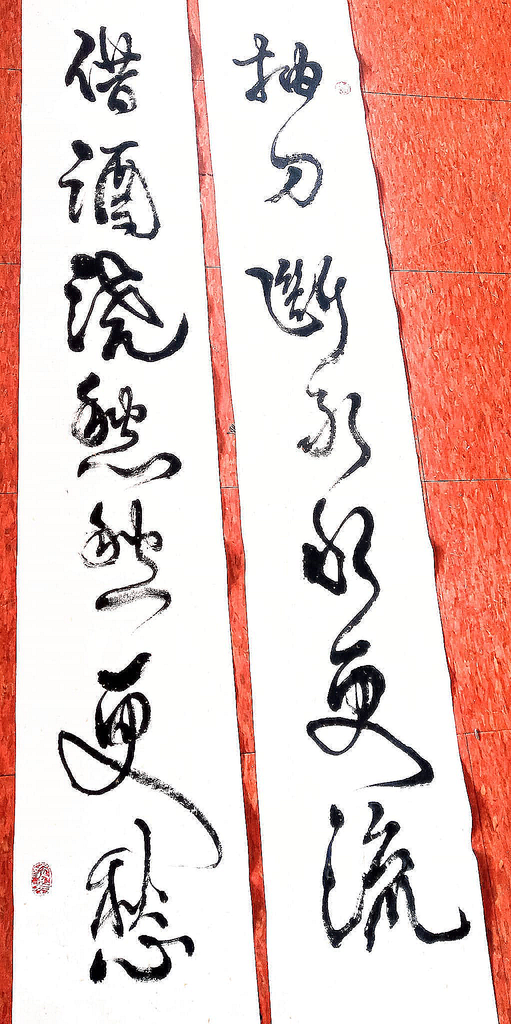 抽刀斷水水更流
借酒浇愁愁更愁